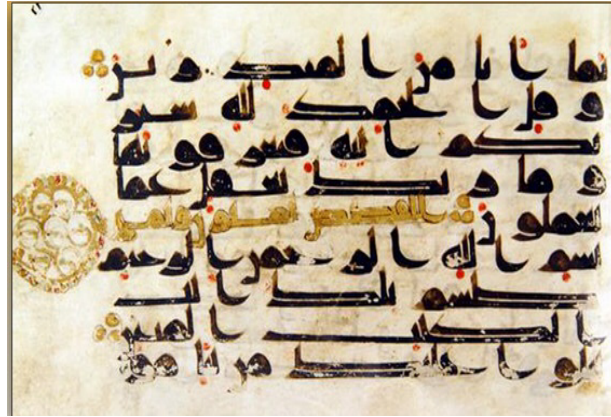 نما انا من المنذرين
و قل الحمد لله سير
يكم ايته فتعرفونها
و ما ربك بغفل عما
تعملون القصص ثمانون وثمني
بسم الله الرحمن الرحيم
طسم تلك ايت
الكتب المبين
نتلوا عليك من نبا موسى